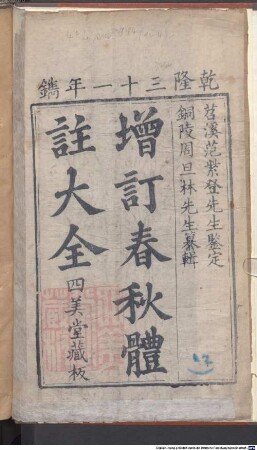 乾隆三十一年鐫
苕溪范紫登先生鑒定
銅陵周旦林先生纂輯
增訂春秋體
註大全
四美堂藏板